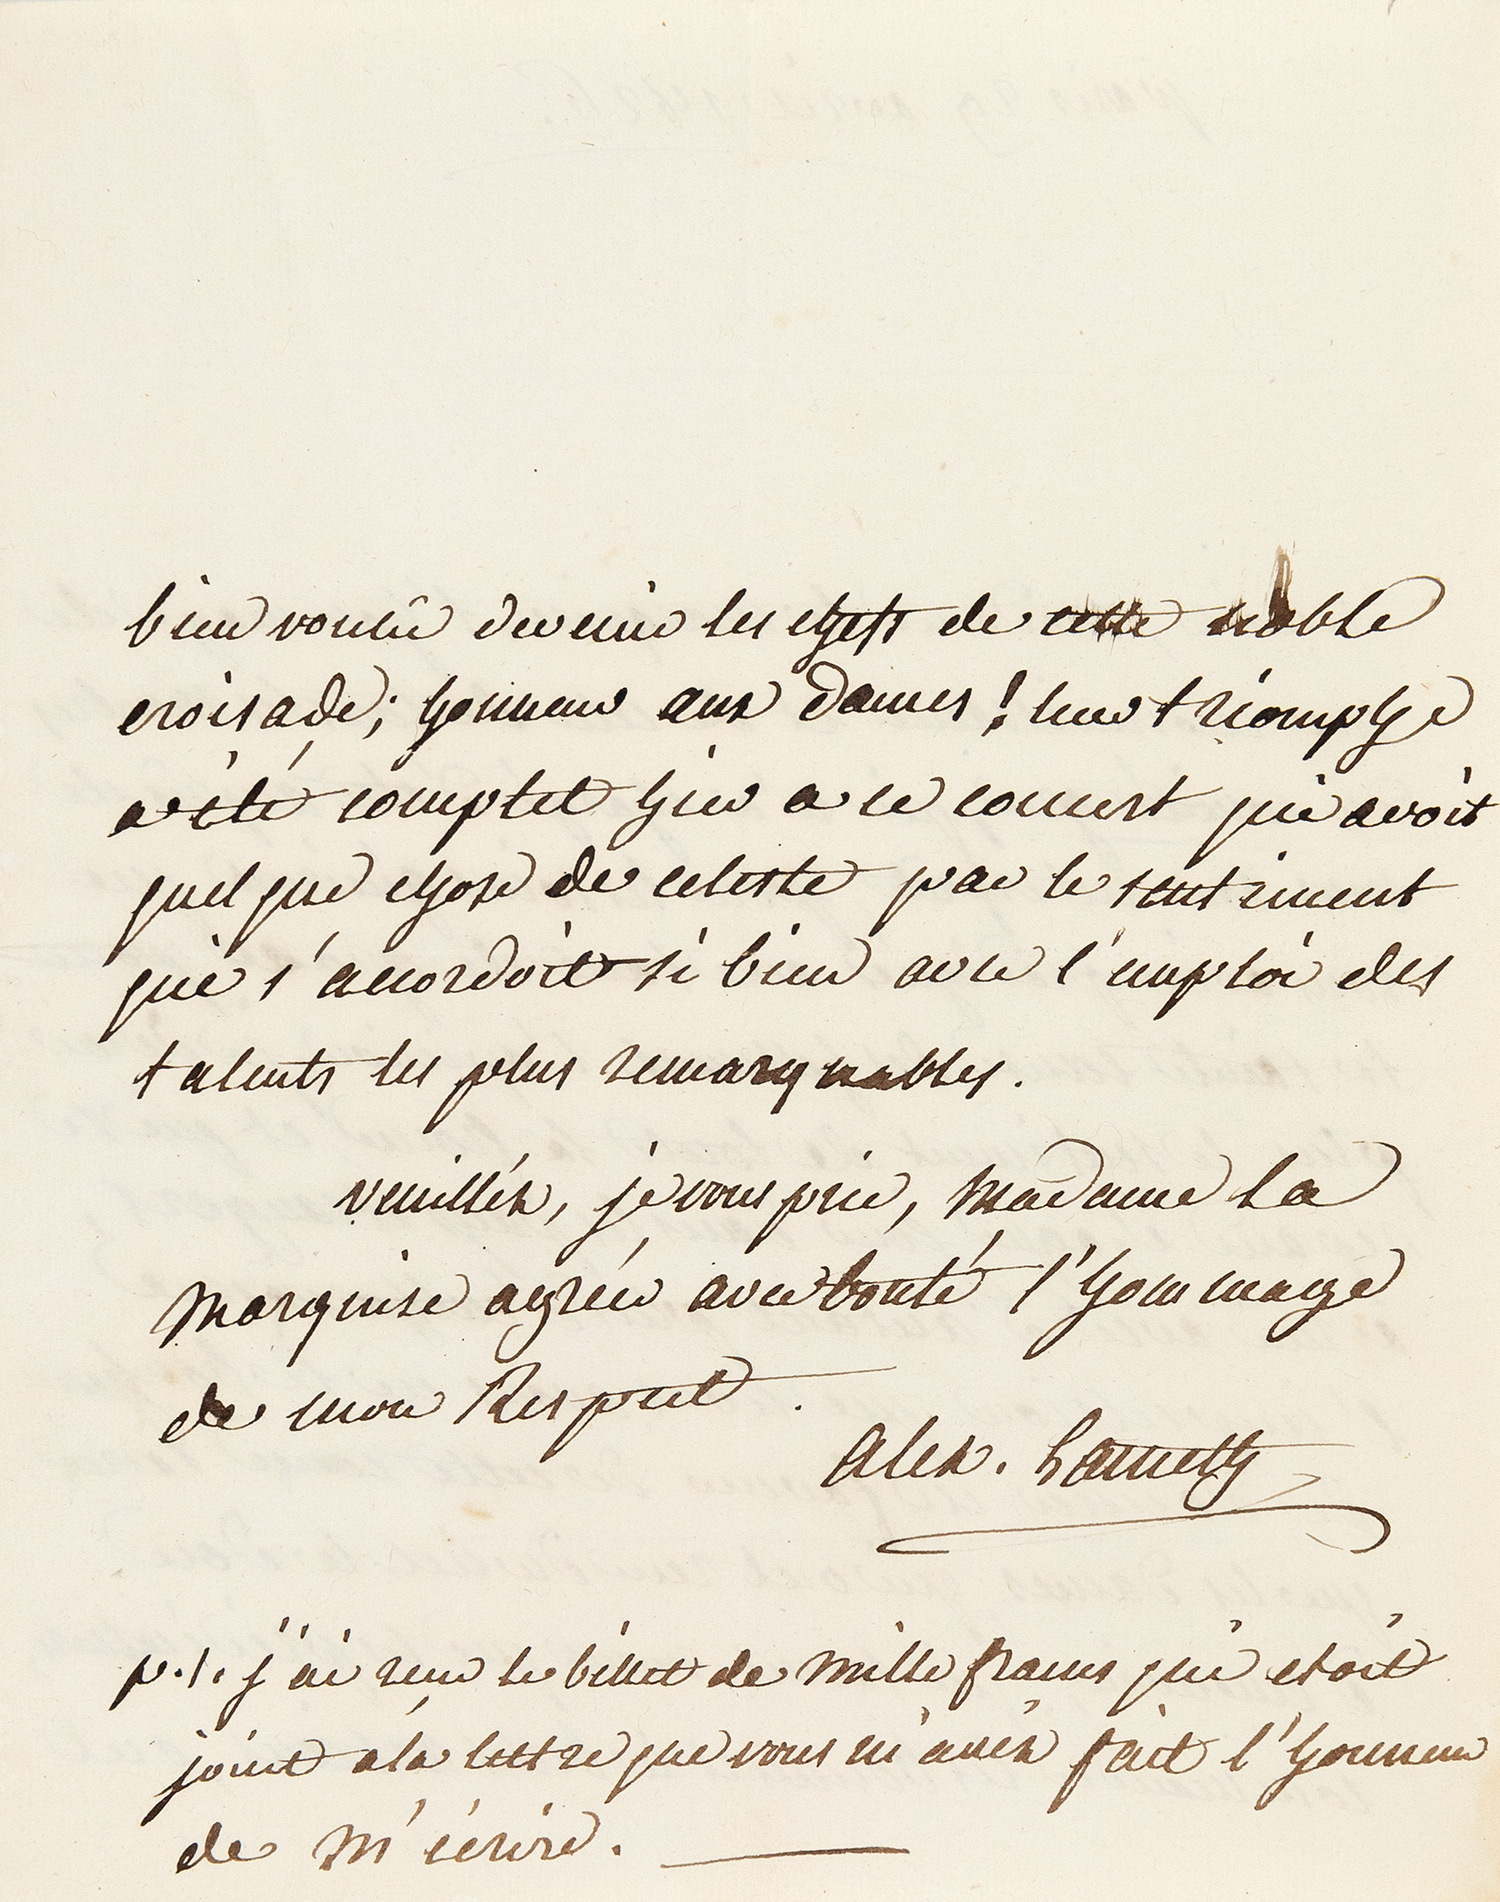 bien voulû devenir les chefs de cette noble
croisade; honneur aux dames! leur triomphe
a été complet hier a ce concert qui avoit
quelque chose de celeste par le sentiment
qui s'accordoit si bien avec l'emploi des
talents les plus remarquables.
veuilléz, je vous prie, Madame la
Marquise agréer avec bonté l'hommage
de mon Respect.
alex. Lameth
p.s. j'ai reçu le billet de Mille francs qui etoit
joint a la lettre que vous m'avéz fait l'honneur
de M'écrire.